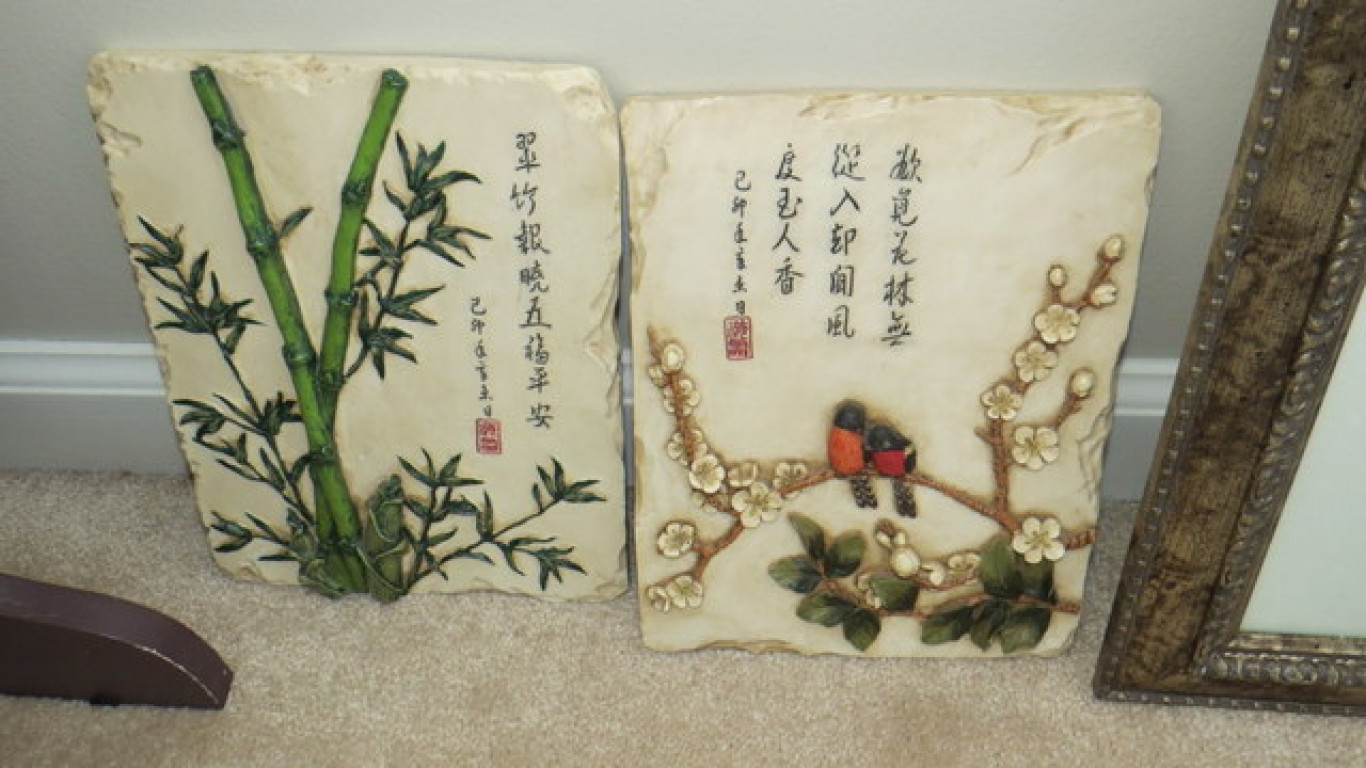 翠竹報曉五福平安
己卯年
日
欲覓花林無
從入却聞風
度玉人香
己卯年
日